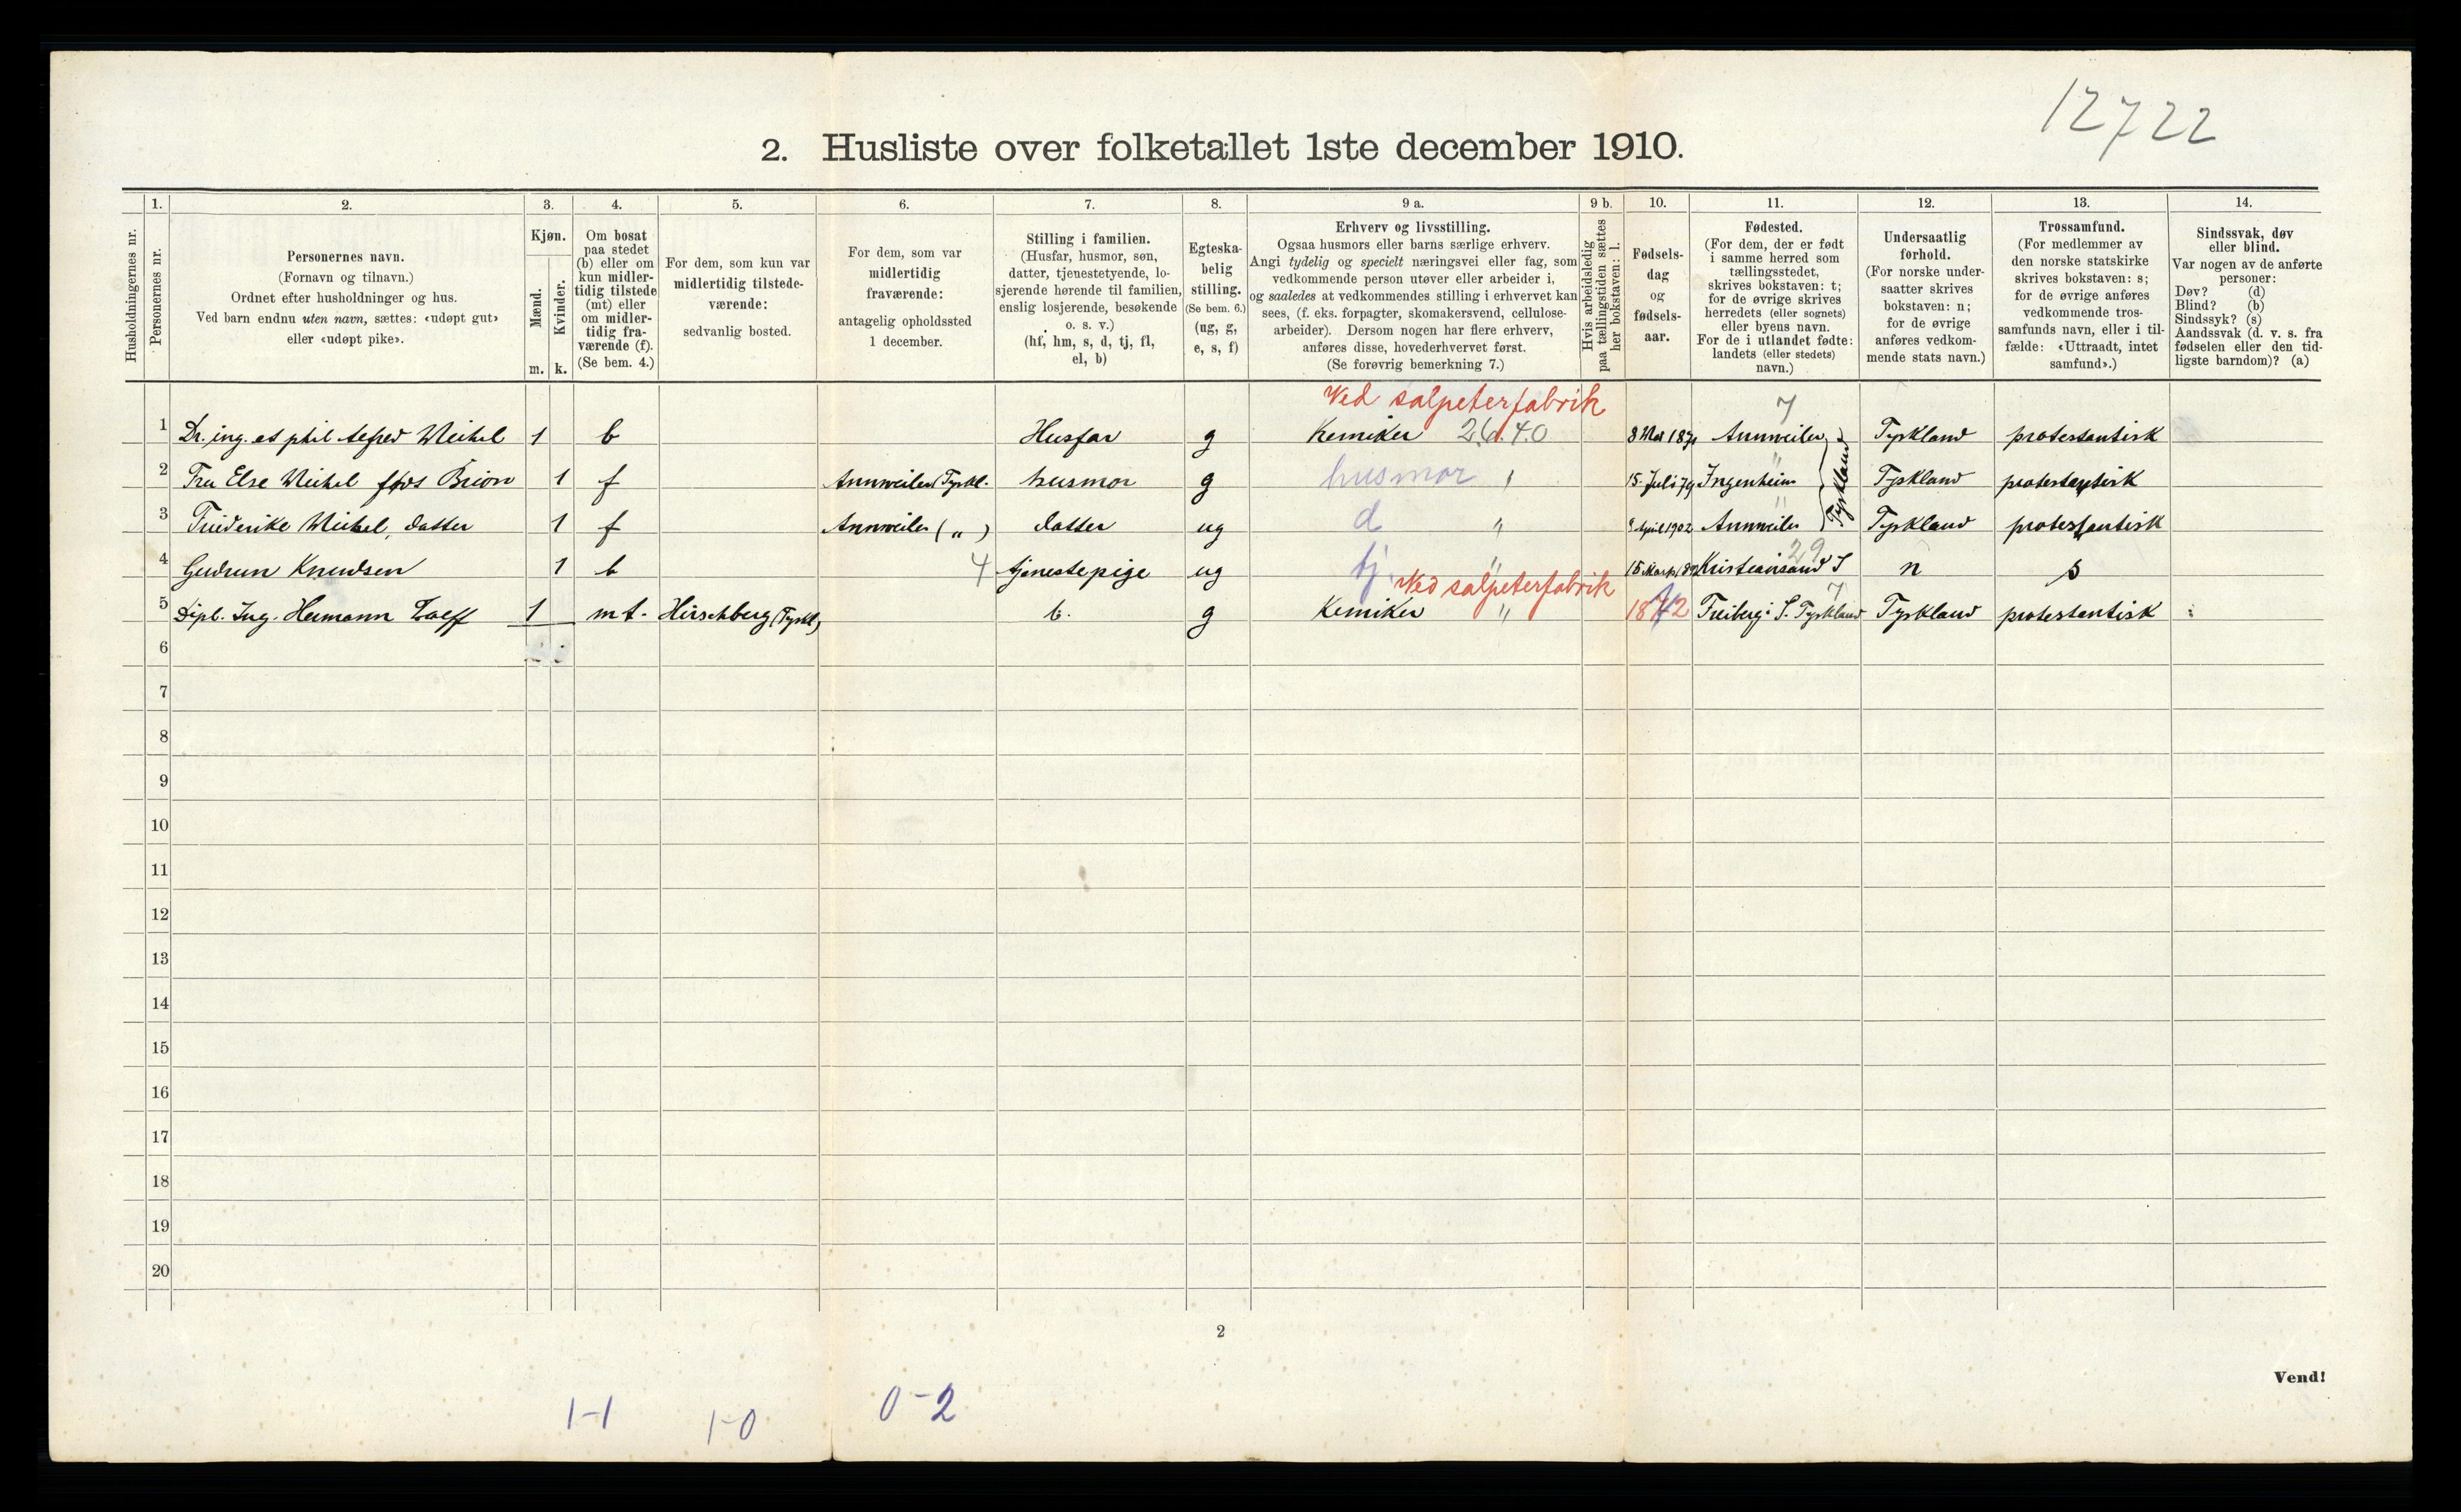 12722
2. Husliste over folketallet 1ste december 1910.
Husholdningernes nr.
1.
Personernes nr.
2.
Personernes navn.
(Fornavn og tilnavn.)
Ordnet efter husholdninger og hus.
Ved barn endnu uten navn, sættes: «udøpt gut»
eller «udøpt pike».
3.
Kjøn.
Mænd.
Kvinder.
m. k.
4.
Om bosat
paa stedet
(b) eller om
kun midler-
tidig tilstede
(mt) eller
om midler-
tidig fra-
værende (f).
(Se bem. 4.)
5.
For dem, som kun var
midlertidig tilstede-
værende:
sedvanlig bosted.
6.
For dem, som var
midlertidig
fraværende:
antagelig opholdssted
1 december.
7.
Stilling i familien.
(Husfar, husmor, søn,
datter, tjenestetyende, lo-
sjerende hørende til familien,
enslig losjerende, besøkende
o. s. v.)
(hf, hm, s, d, tj, fl,
el, b)
8.
Egteska-
belig
stilling.
(Se bem. 6.)
(ug, g,
e, s, f)
9 a.
Erhverv og livsstilling.
Ogsaa husmors eller barns særlige erhverv.
Angi tydelig og specielt næringsvei eller fag, som
vedkommende person utøver eller arbeider i,
og saaledes at vedkommendes stilling i erhvervet kan
sees, (f. eks. forpagter, skomakersvend, cellulose-
arbeider). Dersom nogen har flere erhverv,
anføres disse, hovederhvervet først.
(Se forøvrig bemerkning 7.)
9 b.
Hvis arbeidsledig
paa tællingstiden sættes
her bokstaven: l.
10.
Fødsels-
dag
og
fødsels-
aar.
11.
Fødested.
(For dem, der er født
i samme herred som
tællingsstedet,
skrives bokstaven: t;
for de øvrige skrives
herredets (eller sognets)
eller byens navn.
For de i utlandet fødte:
landets (eller stedets)
navn.)
12.
Undersaatlig
forhold.
(For norske under-
saatter skrives
bokstaven: n;
for de øvrige
anføres vedkom-
mende stats navn.)
13.
Trossamfund.
(For medlemmer av
den norske statskirke
skrives bokstaven: s;
for de øvrige anføres
vedkommende tros-
samfunds navn, eller i til-
fælde: «Uttraadt, intet
samfund».)
14.
Sindssvak, døv
eller blind.
Var nogen av de anførte
personer:
Døv? (d)
Blind? (b)
Sindssyk? (s)
Aandssvak (d. v. s. fra
fødselen eller den tid-
ligste barndom)? (a)
Ved salpeterfabrik 7
1 Dr. ing. et phil Alfred Weikel 1 b Husfar g Kemiker 26.40 8 Annweiler Tyskland protestantisk
2 Fru Else Weikel føds Brion 1 f Annweiler (Tyskl. husmor g husmor 15 Juli 79 Ingenheim " Tyskland Tyskland protestantisk
3 Friederike Weikel, datter 1 f Annweiler ( " ) datter ug d " April 1902 Annweiler " Tyskland protestantisk
4 Gudrun Knudsen 1 b 4 tjenestepige ug tj. " 15 Kristiansand S 29 n s
Ved salpeterfabrik 7
5 Dipl. Ing. Hermann 1 mt. Hirschberg (Tyskl) b. g Kemiker " Freiberg i S. Tyskland Tyskland protestantisk
6
7
8
9
10
11
12
13
14
15
16
17
18
19
20
2
Vend!
1-1 1-0 0-2